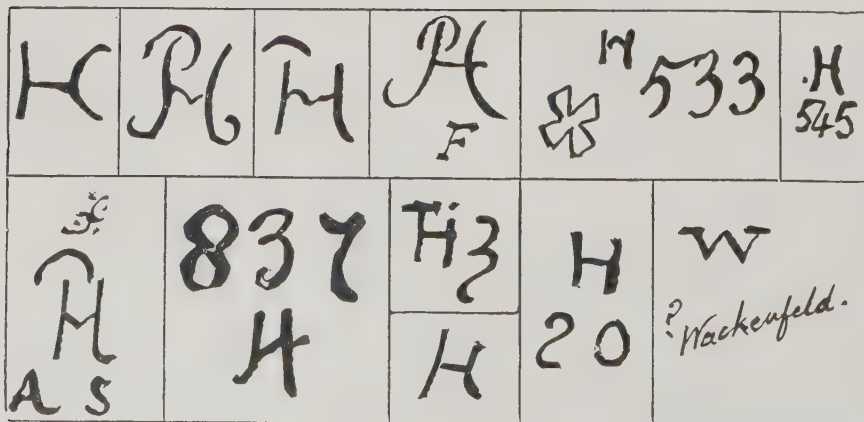 H
PH
H
PH
F
H
533
.H
545
H
A S
837
H
Hi3
H
H
20
W
? Wackenfeld.